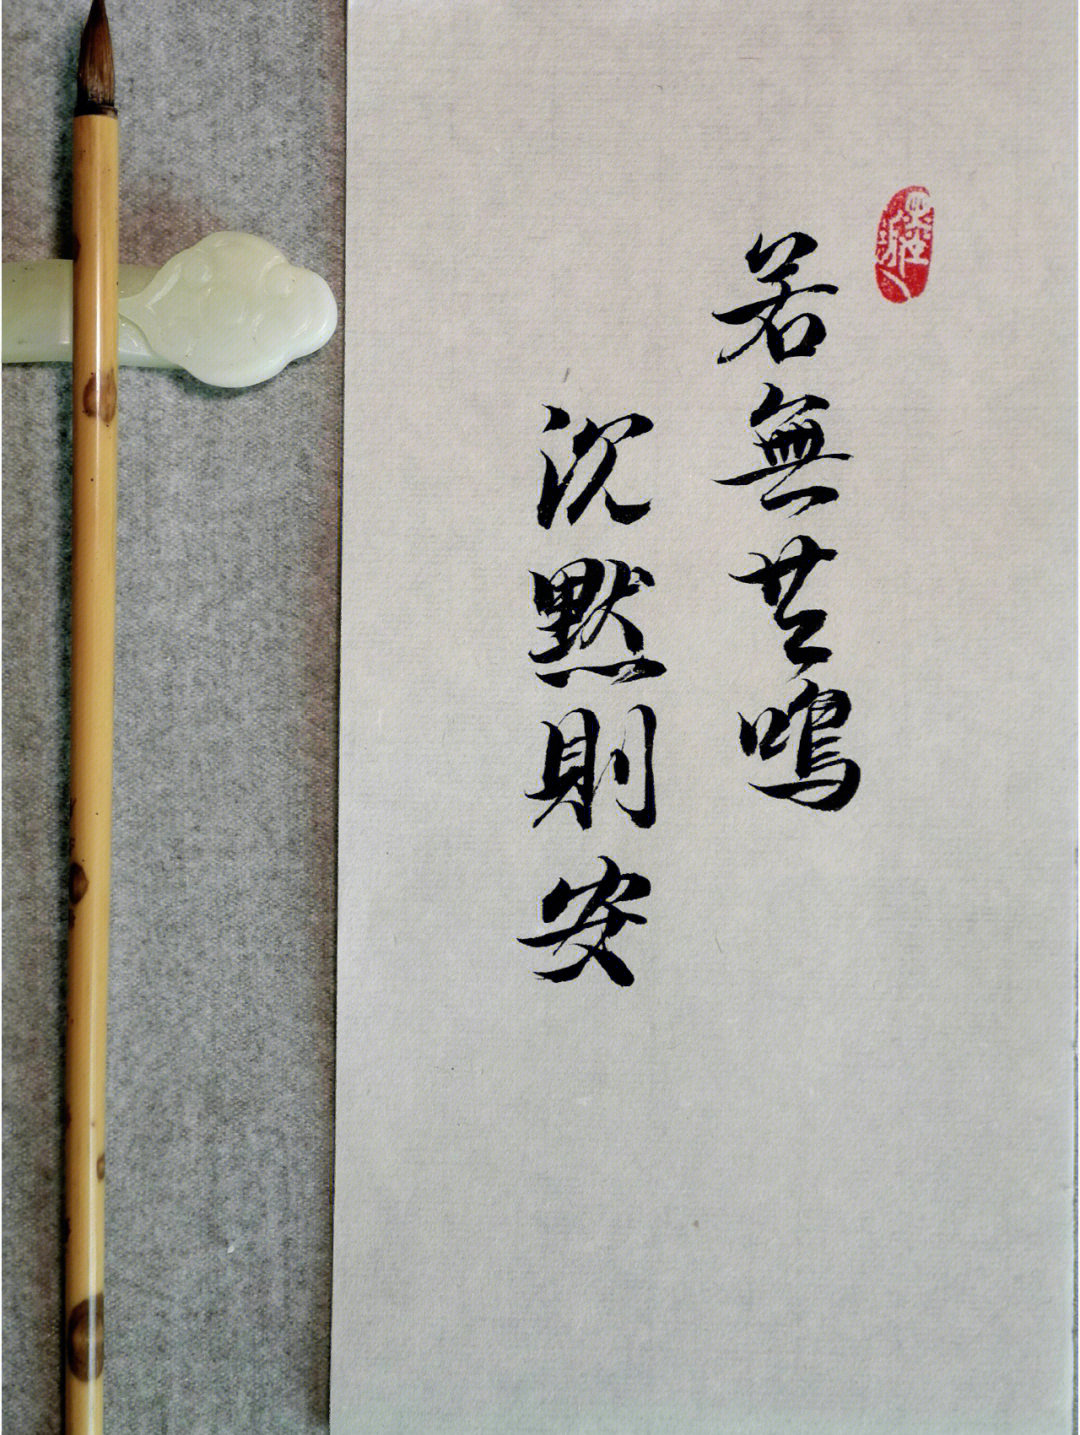 若無共鳴
沉默則安